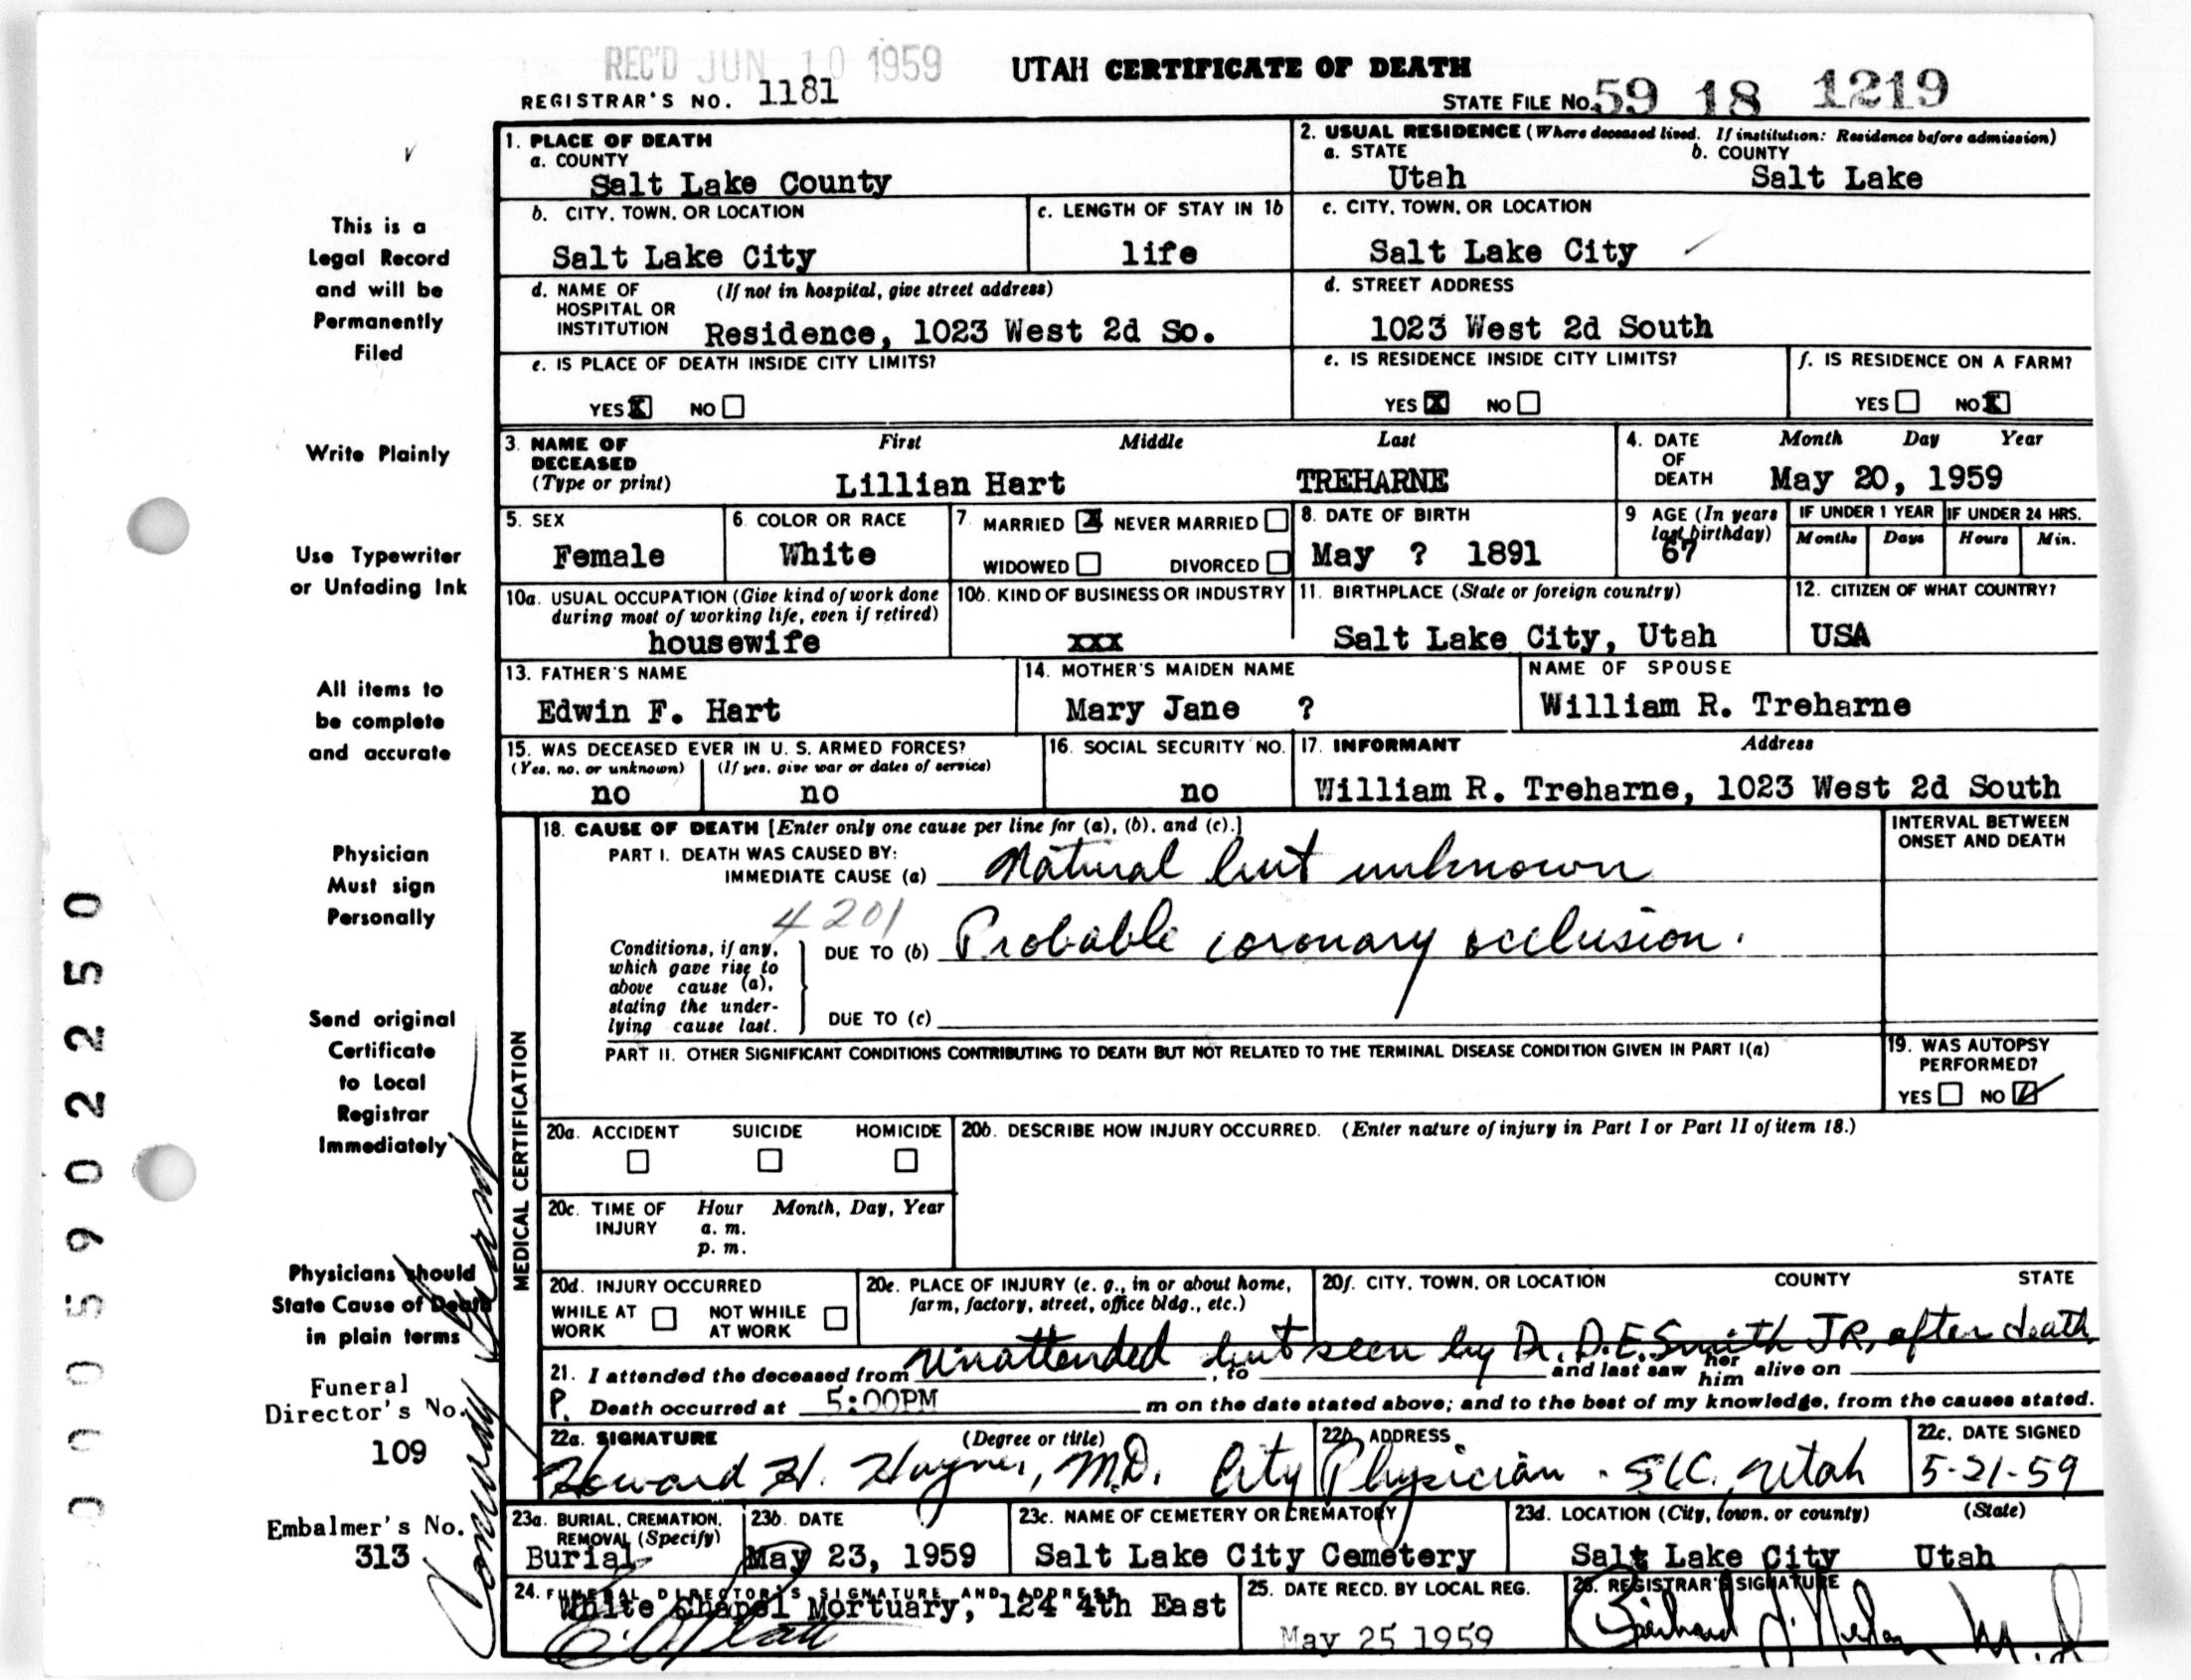 REC'D JUN 10 1959
UTAH CERTIFICATE OF DEATH
REGISTRAR'S NO. 1181
STATE FILE NO. 59 18 1219
This is a
Legal Record
and will be
Permanently
Filed
Write Plainly
Use Typewriter
or Unfading Ink
All items to
be complete
and accurate
Physician
Must sign
Personally
Send original
Certificate
to Local
Registrar
Immediately
Physicians should
State Cause of Death
in plain terms
Funeral
Director's No.
109
Embalmer's No.
313
0005902250
1. PLACE OF DEATH
a. COUNTY
Salt Lake County
2. USUAL RESIDENCE (Where deceased lived. If institution: Residence before admission)
a. STATE b. COUNTY
Utah Salt Lake
b. CITY, TOWN, OR LOCATION
Salt Lake City
c. LENGTH OF STAY IN 1b
life
c. CITY, TOWN, OR LOCATION
Salt Lake City
d. NAME OF (If not in hospital, give street address)
HOSPITAL OR
INSTITUTION Residence, 1023 West 2d So.
d. STREET ADDRESS
1023 West 2d South
e. IS PLACE OF DEATH INSIDE CITY LIMITS?
YES X NO
e. IS RESIDENCE INSIDE CITY LIMITS?
YES X NO
f. IS RESIDENCE ON A FARM?
YES NO X
3. NAME OF First Middle Last
DECEASED
(Type or print) Lillian Hart TREHARNE
4. DATE Month Day Year
OF
DEATH May 20, 1959
5. SEX
Female
6. COLOR OR RACE
White
7. MARRIED X NEVER MARRIED
WIDOWED DIVORCED
8. DATE OF BIRTH
May ? 1891
9 AGE (In years
last birthday)
67
IF UNDER 1 YEAR IF UNDER 24 HRS.
Months Days Hours Min.
10a. USUAL OCCUPATION (Give kind of work done
during most of working life, even if retired)
housewife
10b. KIND OF BUSINESS OR INDUSTRY
xxx
11. BIRTHPLACE (State or foreign country)
Salt Lake City, Utah
12. CITIZEN OF WHAT COUNTRY?
USA
13. FATHER'S NAME
Edwin F. Hart
14. MOTHER'S MAIDEN NAME
Mary Jane ?
NAME OF SPOUSE
William R. Treharne
15. WAS DECEASED EVER IN U. S. ARMED FORCES?
(Yes, no, or unknown) (If yes, give war or dates of service)
no no
16. SOCIAL SECURITY NO.
no
17. INFORMANT Address
William R. Treharne, 1023 West 2d South
MEDICAL CERTIFICATION
18. CAUSE OF DEATH [Enter only one cause per line for (a), (b), and (c).]
PART I. DEATH WAS CAUSED BY:
IMMEDIATE CAUSE (a) Natural but unknown
4201
Conditions, if any,
which gave rise to
above cause (a),
stating the under-
lying cause last.
DUE TO (b) Probable coronary occlusion.
DUE TO (c)
INTERVAL BETWEEN
ONSET AND DEATH
PART II. OTHER SIGNIFICANT CONDITIONS CONTRIBUTING TO DEATH BUT NOT RELATED TO THE TERMINAL DISEASE CONDITION GIVEN IN PART I(a)
19. WAS AUTOPSY
PERFORMED?
YES NO
20a. ACCIDENT SUICIDE HOMICIDE
20b. DESCRIBE HOW INJURY OCCURRED. (Enter nature of injury in Part I or Part II of item 18.)
20c. TIME OF Hour Month, Day, Year
INJURY a. m.
p. m.
20d. INJURY OCCURRED
WHILE AT NOT WHILE
WORK AT WORK
20e. PLACE OF INJURY (e. g., in or about home,
farm, factory, street, office bldg., etc.)
20f. CITY, TOWN, OR LOCATION COUNTY STATE
unattended but seen by Dr. D.E. Smith JR, after death
21. I attended the deceased from , to and last saw her him alive on
P. Death occurred at 5:00PM m on the date stated above; and to the best of my knowledge, from the causes stated.
22a. SIGNATURE (Degree or title)
22b. ADDRESS
22c. DATE SIGNED
Howard H. Haynes, M.D. City Physician - SLC, Utah 5-21-59
23a. BURIAL, CREMATION,
REMOVAL (Specify)
Burial
23b. DATE
May 23, 1959
23c. NAME OF CEMETERY OR CREMATORY
Salt Lake City Cemetery
23d. LOCATION (City, town, or county) (State)
Salt Lake City Utah
24. FUNERAL DIRECTOR'S SIGNATURE AND ADDRESS
White Chapel Mortuary, 124 4th East
25. DATE RECD. BY LOCAL REG.
May 25 1959
26. REGISTRAR'S SIGNATURE